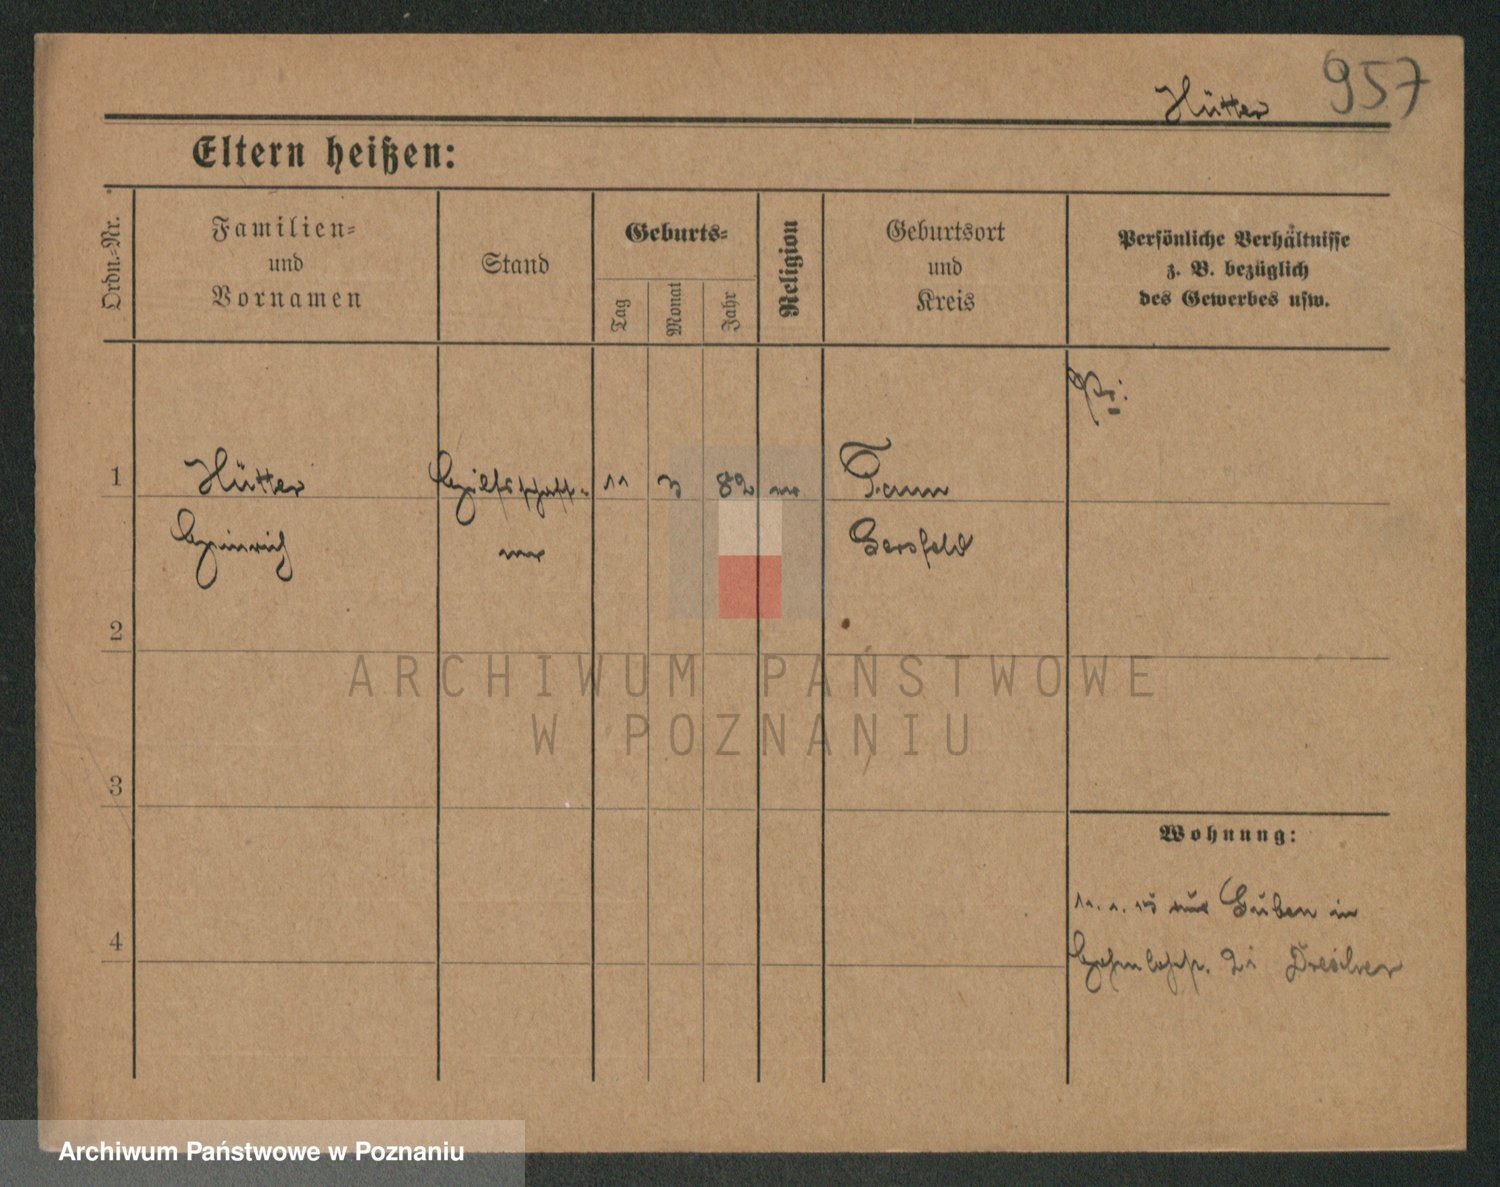 Hütter 957
Eltern heißen:
Ordn.-Nr.
Familien-
und
Vornamen
Stand
Geburts-
Tag
Monat
Jahr
Religion
Geburtsort
und
Kreis
Persönliche Verhältnisse
z. B. bezüglich
des Gewerbes usw.
Pr:
1 Hütter Hilfsschaff- 11 3 82 Tann
Heinrich ner Gersfeld
2
3
4
Wohnung:
Guben in
21 Drescher
ARCHIWUM PAŃSTWOWE
W POZNANIU
Archiwum Państwowe w Poznaniu